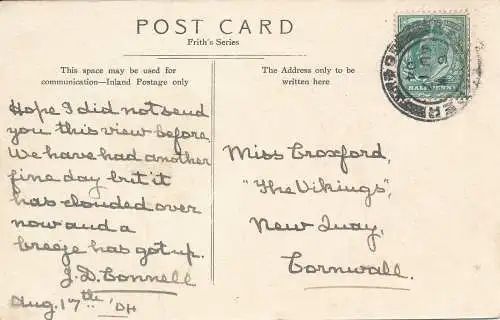 POST CARD
Frith's Series
This space may be used for
communication—Inland Postage only
The Address only to be
written here
HALFPENNY
Hope I did not send
you this view before.
We have had another
fine day but it
has clouded over
now and a
breeze has got up.
J.D. Connell
Aug. 17th '04
Miss Croxford,
"The Vikings",
New Quay,
Cornwall.